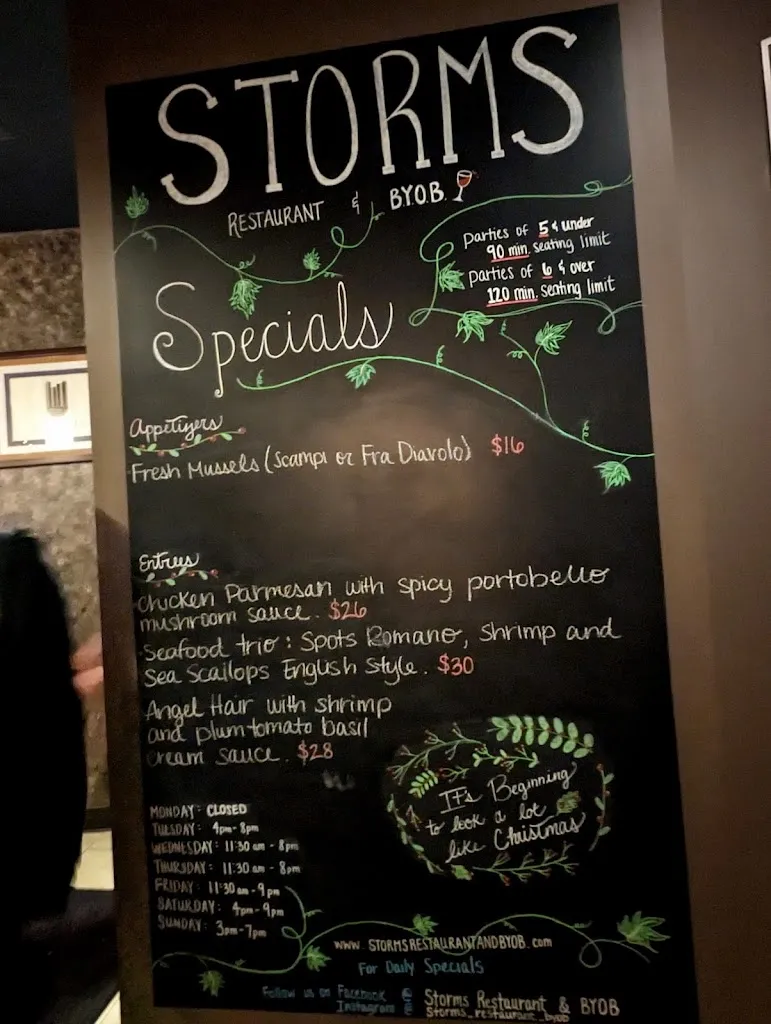 STORMS
RESTAURANT & B.Y.O.B.
parties of 5 & under
90 min. seating limit
parties of 6 & over
120 min. seating limit
Specials
Appetizers
Fresh Mussels (Scampi or Fra Diavolo) $16
Entrees
Chicken Parmesan with spicy portobello
mushroom sauce. $26
Seafood trio: Spots Romano, Shrimp and
Sea Scallops English Style. $30
Angel Hair with shrimp
and plum tomato basil
cream sauce. $28
It's Beginning
to look a lot
like Christmas
MONDAY: CLOSED
TUESDAY: 4pm-8pm
WEDNESDAY: 11:30 am - 8pm
THURSDAY: 11:30 am - 8pm
FRIDAY: 11:30 am - 9pm
SATURDAY: 4pm-9pm
SUNDAY: 3pm-7pm
www.STORMSRESTAURANTANDBYOB.com
For Daily Specials
Follow us on Facebook @ Storms Restaurant & BYOB
Instagram @ Storms_restaurant_byob